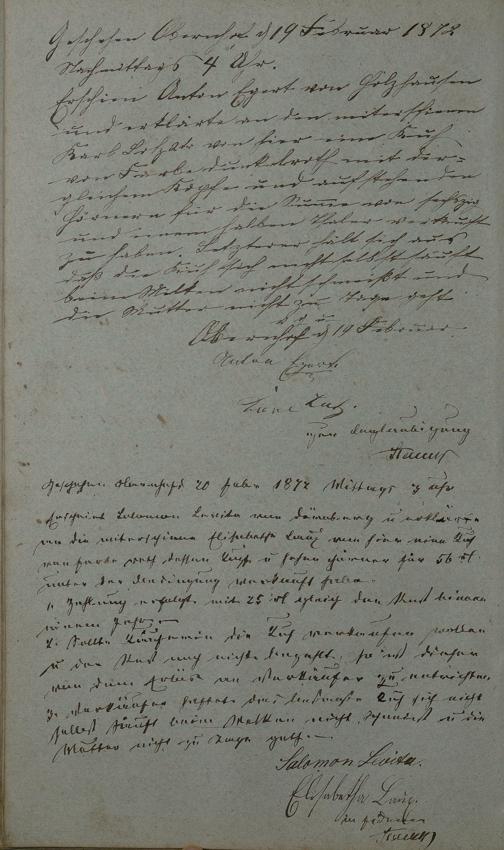 Geschehen Obernhof d 19 Februar 1872
Nachmittags 4 Uhr.
Erschien Anton Egert von Holzhausen
und erklärte an den miterschienen
Karl von hier eine Kuh
von Farbe dunkelroth mit der-
gleichem Kopfe und aufstehenden
Hörnern für die Summe von sechszig
und einem halben Thaler verkauft
zu haben. Letzterer hält sich aus
daß die Kuh sich nicht selbst sauft
beim Melken nicht schmeißt und
die Mutter nicht zu Tage geht
v. g. u.
Obernhof d 19 Februar
Anton Egert
zur Beglaubigung
Geschehen Obernhof 20 Febr 1872 Mittags 3 Uhr
Erscheint Salomon Levita von u erklärte
an die miterschienene Elisabetha Lanz von hier eine Kuh
von Farbe roth Kopf u Hörner für 56 rl.
unter der Bedingung verkauft habe.
1. Zahlung erfolgt mit 25 rl gleich den Rest binnen
einem Jahr
2. Sollte Käuferin die Kuh verkaufen wollen
u der Rest noch nicht bezahlt, so ist dieser
von dem Erlöse an Verkäufer zu entrichten.
3. Verkäufer haftet das Kuh sich nicht
selbst sauft beim Melken nicht schmeist u die
Mutter nicht zu Tage geht.
Salomon Levita.
Elisabetha Lanz.